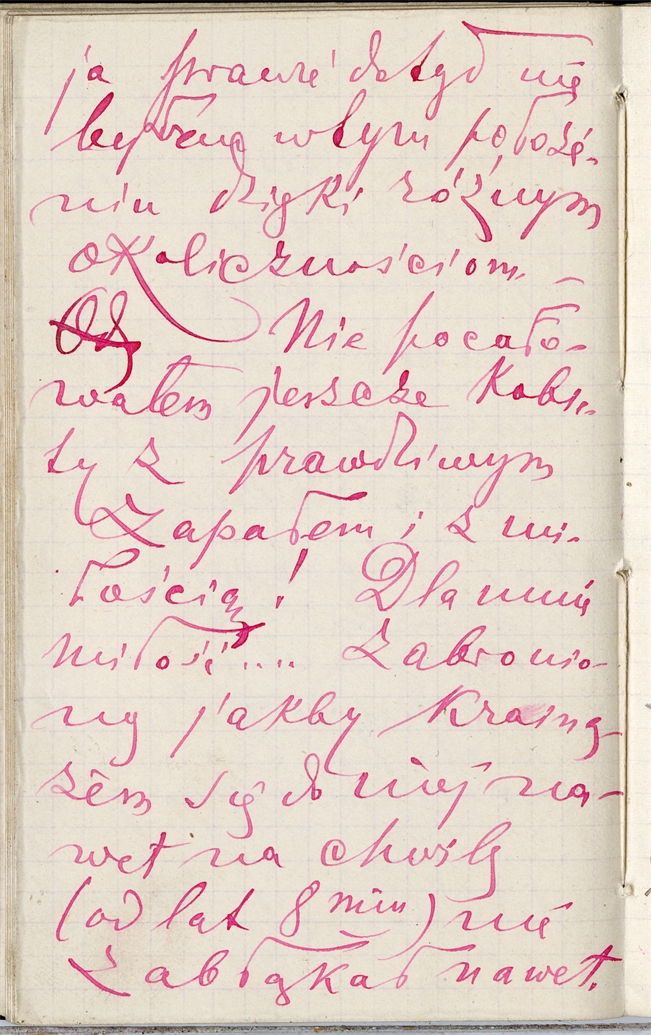 ja prawie dotyd nie
byłem w tym położe-
niu dzięki różnym
okolicznościom –
Nie pocało-
wałem jeszcze Kobie-
ty z prawdziwym
Zapałem i z mi-
łością! Dla mnie
miłość.... Zabronio-
ną jakby Krainą
żem się do niej na-
wet na chwilę
(od lat 8miu) nie
Zabłąkał nawet.